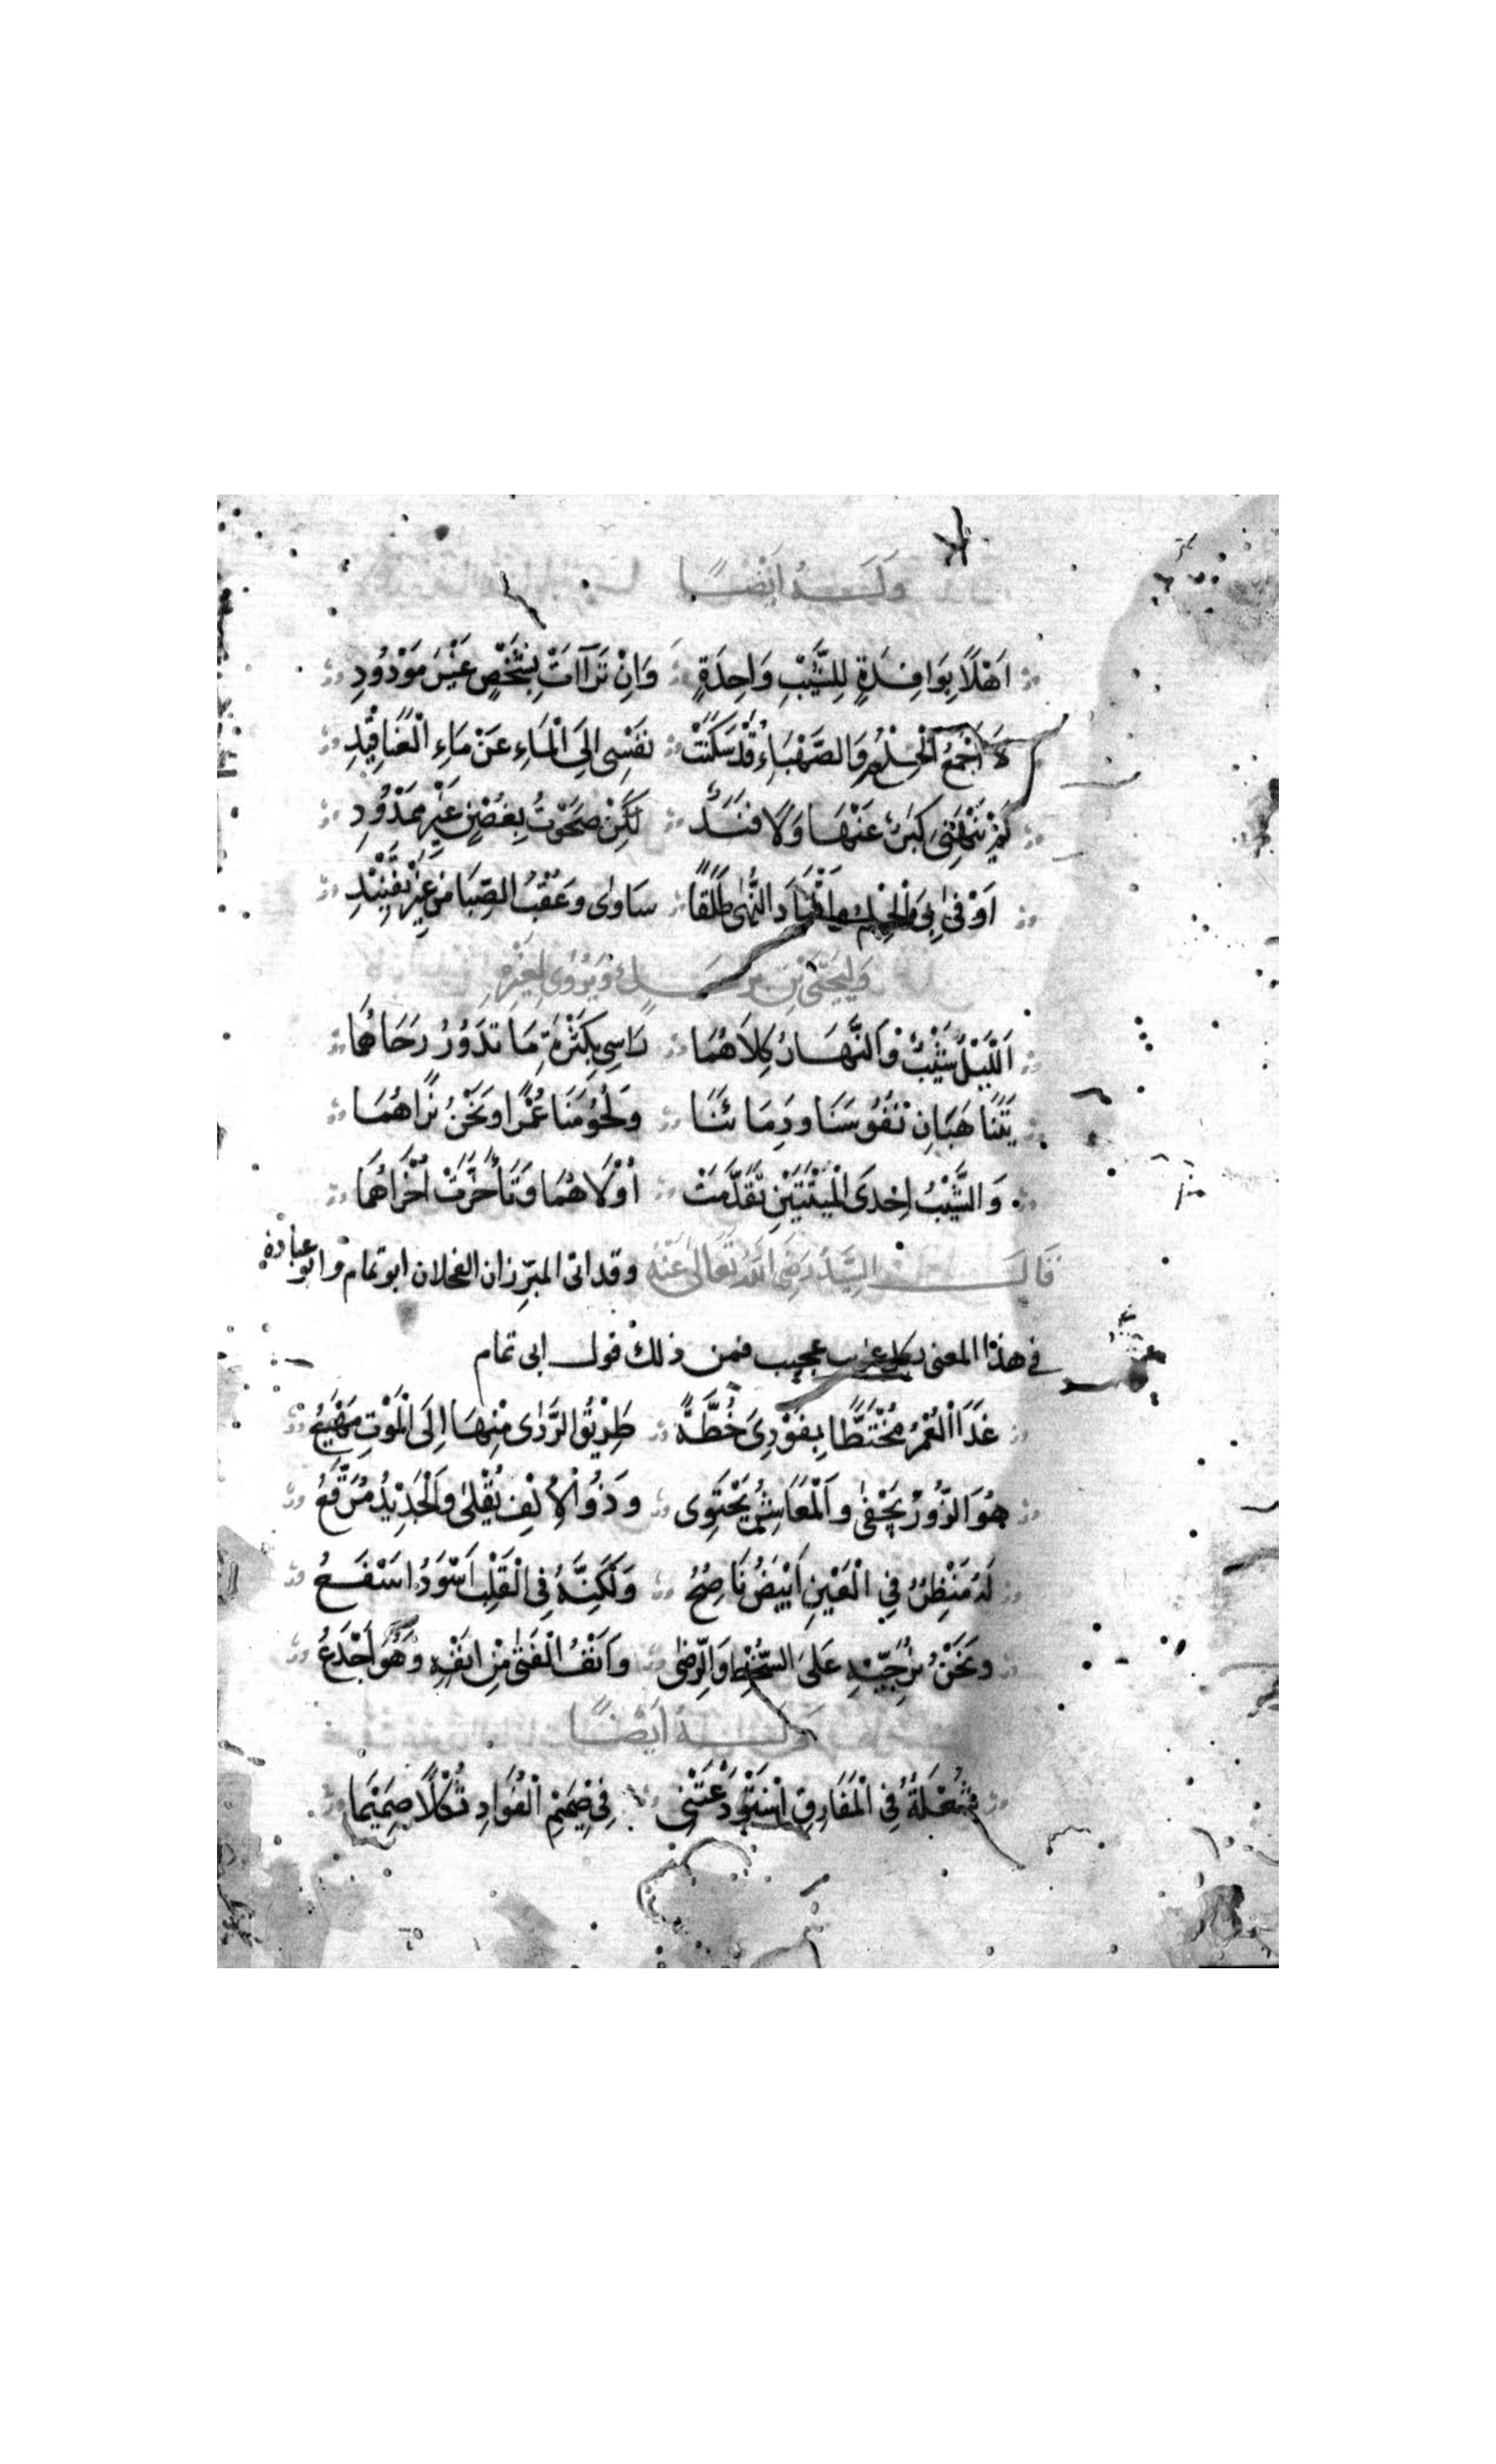 وَلَــهُ اَيْضًــا
اَهْلًا بِوَافِدَةٍ لِلشَّيْبِ وَاحِدَةٍ وَاِنْ تَرَاآتْ بِشَخْصٍ غَيْرَ مَوْدُودِ
لَا اَجْمَعُ الْحِلْمَ وَالصَّهْبَاءُ قَدْ سَكَنَتْ نَفْسِى اِلَى الْمَاءِ عَنْ مَاءِ الْعَنَاقِيْدِ
لَمْ تَنْهَنِى كِبَرٌ عَنْهَا وَلَا فَنَدٌ لٰكِنْ صَحَوْتُ بِغُصْنٍ غَيْرِ مَمْدُوْدِ
اَوْفٰى بِىَ الْحِلْمُ وَاقْتَادَ النُّهٰى طَلَقًا سَاوٰى وَعُقْبُ الصِّبَا مِنْ غَيْرِ تَفْنِيْدِ
وَلِيَحْيَى بْنِ وَيُرْوٰى لِغَيْرِهِ
اَللَّيْلُ شَيْبٌ وَالنَّهَــارُ كِلَاهُمَا رَاسِى بِكَثْرَةِ مَا تَدَوُرُ رَحَاهُمَا
يَتَنَاهَبَانِ نُفُوسَنَا وَدِمَائَنَا وَلُحُوْمَنَا عُمْرًا وَنَحْنُ نَرَاهُمَا
وَالشَّيْبُ اِحْدَى الْمِيْتَتَيْنِ تَقَدَّمَتْ اُوْلَاهُمَا وَتَأَخَّرَتْ اُخْرَاهُمَا
قَالَــــ السَّيِّدُ رَضِىَ اللهُ تَعَالٰى عَنْهُ وقد اتى المبرِّزان الفحلان ابو تمام وابو عبادة
فى هذا المعنى بكل غريب عجيب فمن ذلك قولــ ابى تمام
غَدَا الْغَمُّ مُخْتَطًّا بِفَوْدِىَ خُطَّةً طَرِيْقُ الرَّدٰى مِنْهَا اِلَى الْمَوْتِ مَهْيَعُ
هُوَ الزَّوْرُ يُجْفٰى وَالْمَعَاشِرُ يَجْتَوِى وَذُوْ الْاِلْفِ يُقْلٰى وَالْجَدِيْدُ مُرَقَّعُ
لَهُ مَنْظِرٌ فِى الْعَيْنِ اَبْيَضُ نَاصِحُ وَلٰكِنَّهُ فِى الْقَلْبِ اَسْوَدُ اسَفَــعُ
وَنَحْنُ نُرَجِّيْهِ عَلَى السُّخْطِ وَالرِّضٰى وَاَنْفُ الْفَتٰى مِنْ انَفْهِ وَهُوَ اَجْدَعُ
وَلَــــهُ اَيْضًــا
شُعْلَةٌ فِى الْمَفَارِقِ اسْتَوْدَعَتْنِى فِى صَمِيْمِ الْفُوَادِ ثُكْلًا صَمِيْمًا